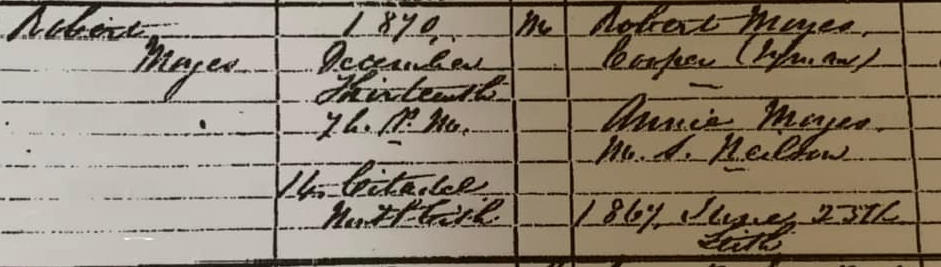 Robert
Moyes
1870,
December
Thirteenth
7h. P. M.
14 Citadel
North Leith
M
Robert Moyes,
Cooper (Jyman)
Annie Moyes,
M. S. Neilson
1867, June 25th
Leith